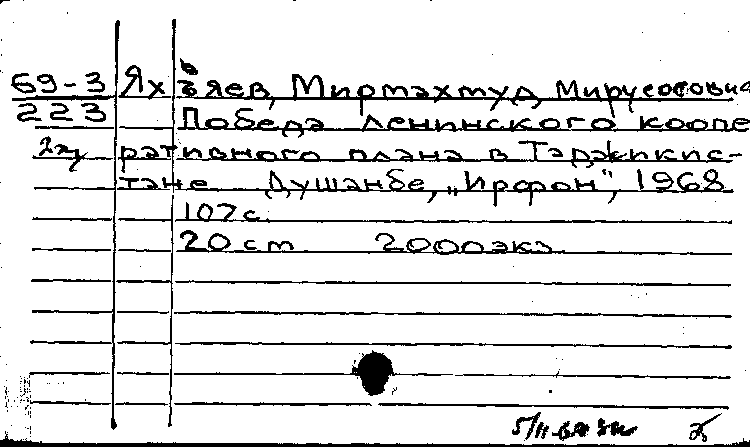 69-3 Яхъяев, Мирмахмуд Мирусосович
223 Победа Ленинского коопе
2экз ративного плана в Таджикис-
тане Душанбе, „Ирфон", 1968
107 с.
20 см 2000 экз.